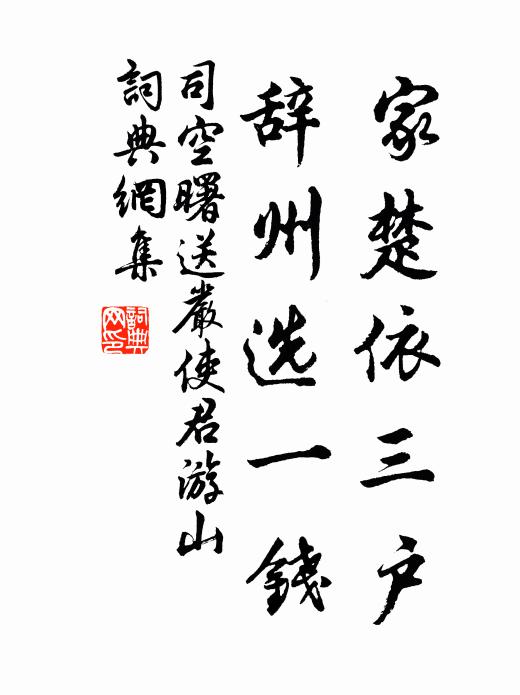 家楚依三户
辞州选一錢
司空曙送嚴使君游山
詞典網集
詞典网印